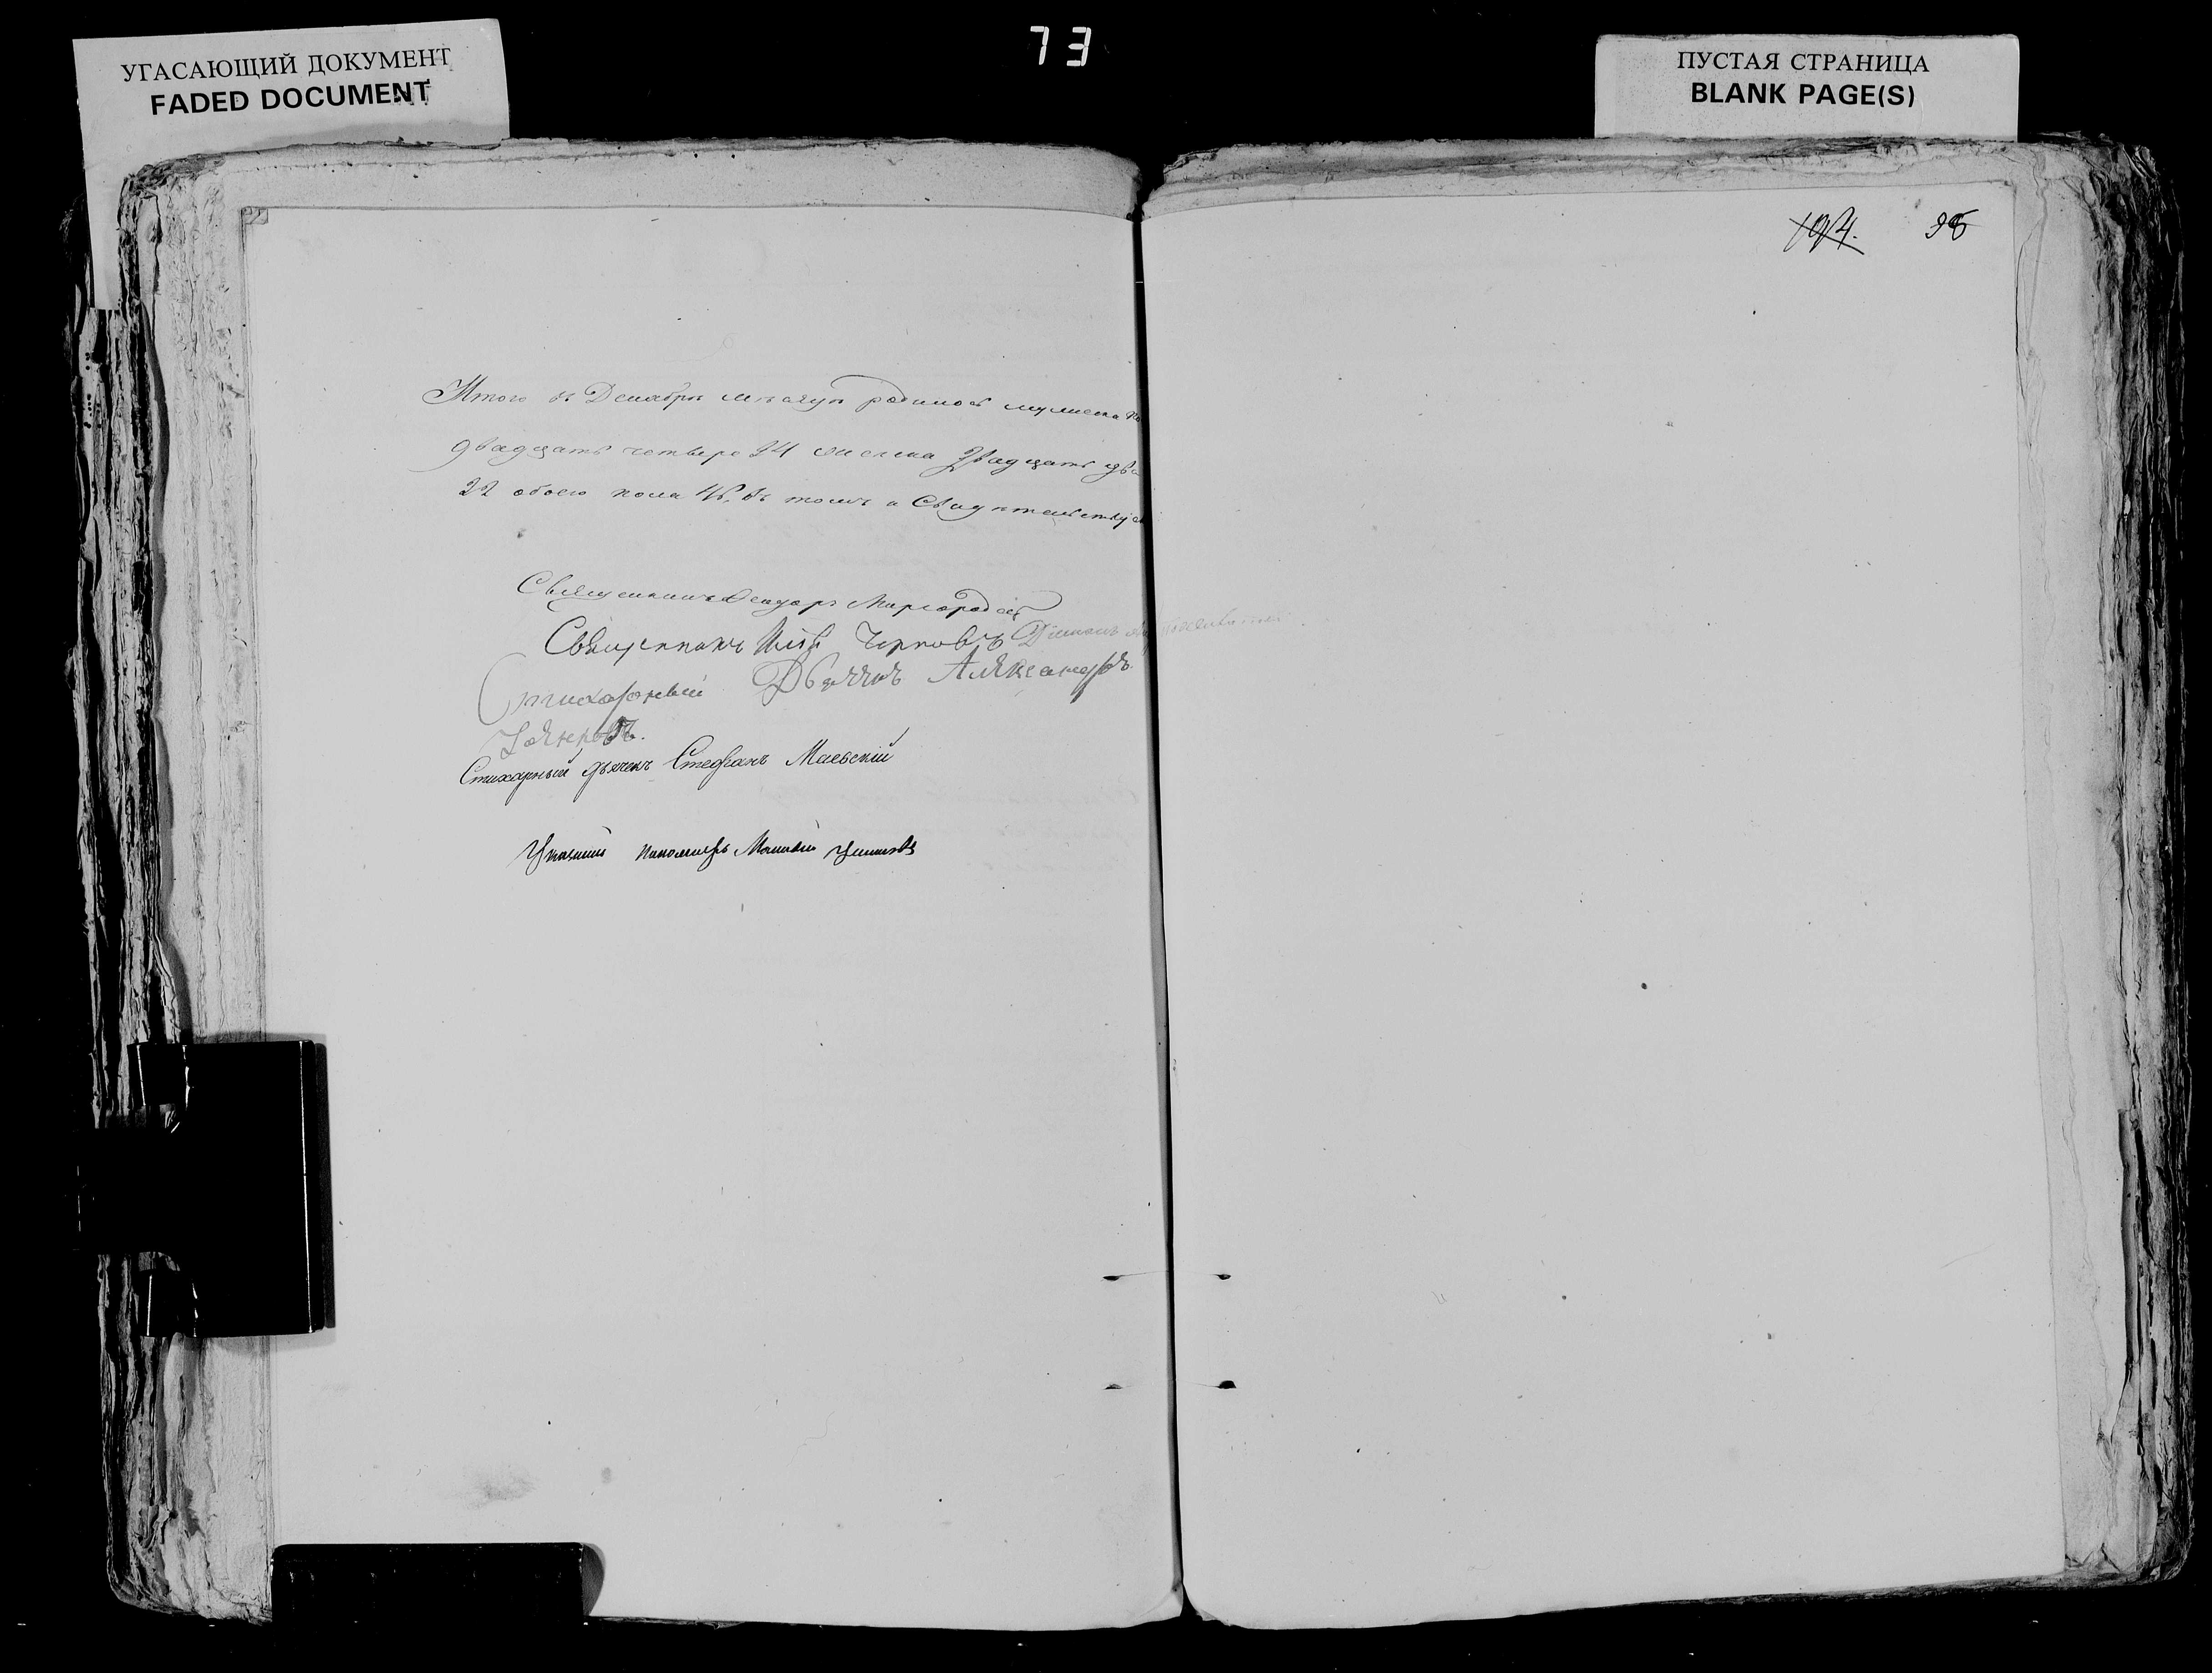 УГАСАЮЩИЙ ДОКУМЕНТ
FADED DOCUMENT
73
ПУСТАЯ СТРАНИЦА
BLANK PAGE(S)
194. 98
Итого въ Декабрѣ мѣсяцѣ родилось мужеска по
двадцать четыре 24 женска двадцать два
22 обоего пола 46, въ томъ и свидѣтельствуемъ
Священникъ Феодоръ Миргородскій
Священникъ Илія Черновъ Діаконъ
Стихарный Дьячокъ Александръ
Стихарный дьячекъ Стефанъ Маевскій
Указный пономарь